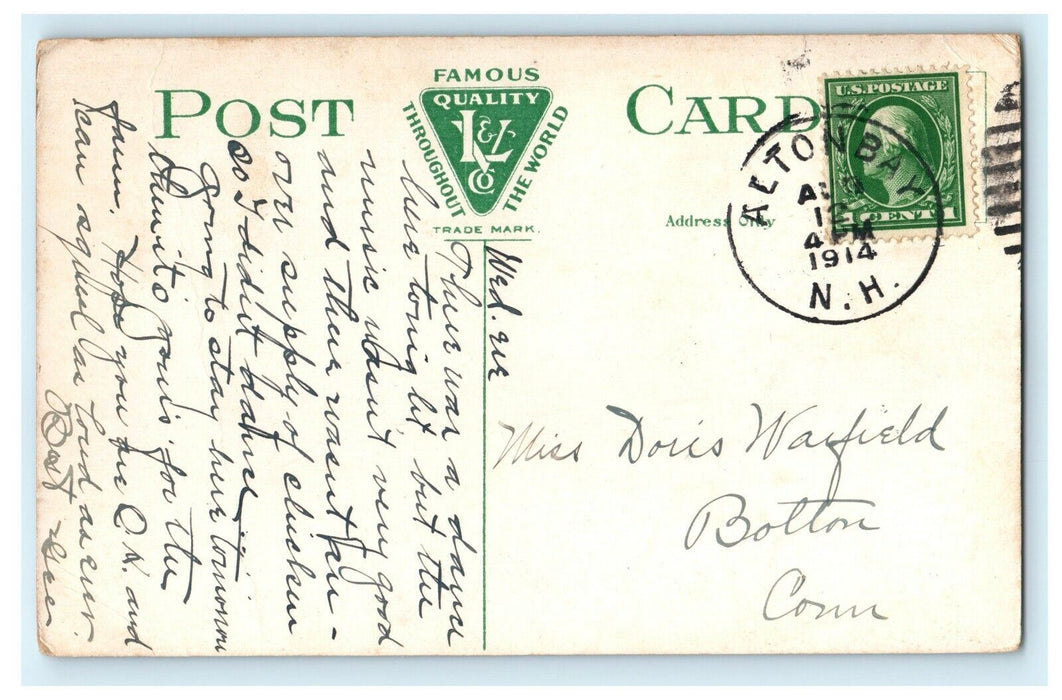 POST CARD
FAMOUS
QUALITY
THROUGHOUT
THE WORLD
K & L
Co
TRADE MARK.
Address Only
U.S. POSTAGE
CENT
ALTON BAY
AUG
12
4 PM
1914
N.H.
Wed. eve
There was a dance
here to'nig bet but the
music wasn't very good
and there wasn't
our supply of chicken
so I didn't dance
Going to stay here tomorrow
then it's for the
farm. Hope you are O.K. and
can squeal as loud as ever.
Miss Doris Wayfield
Bolton
Conn